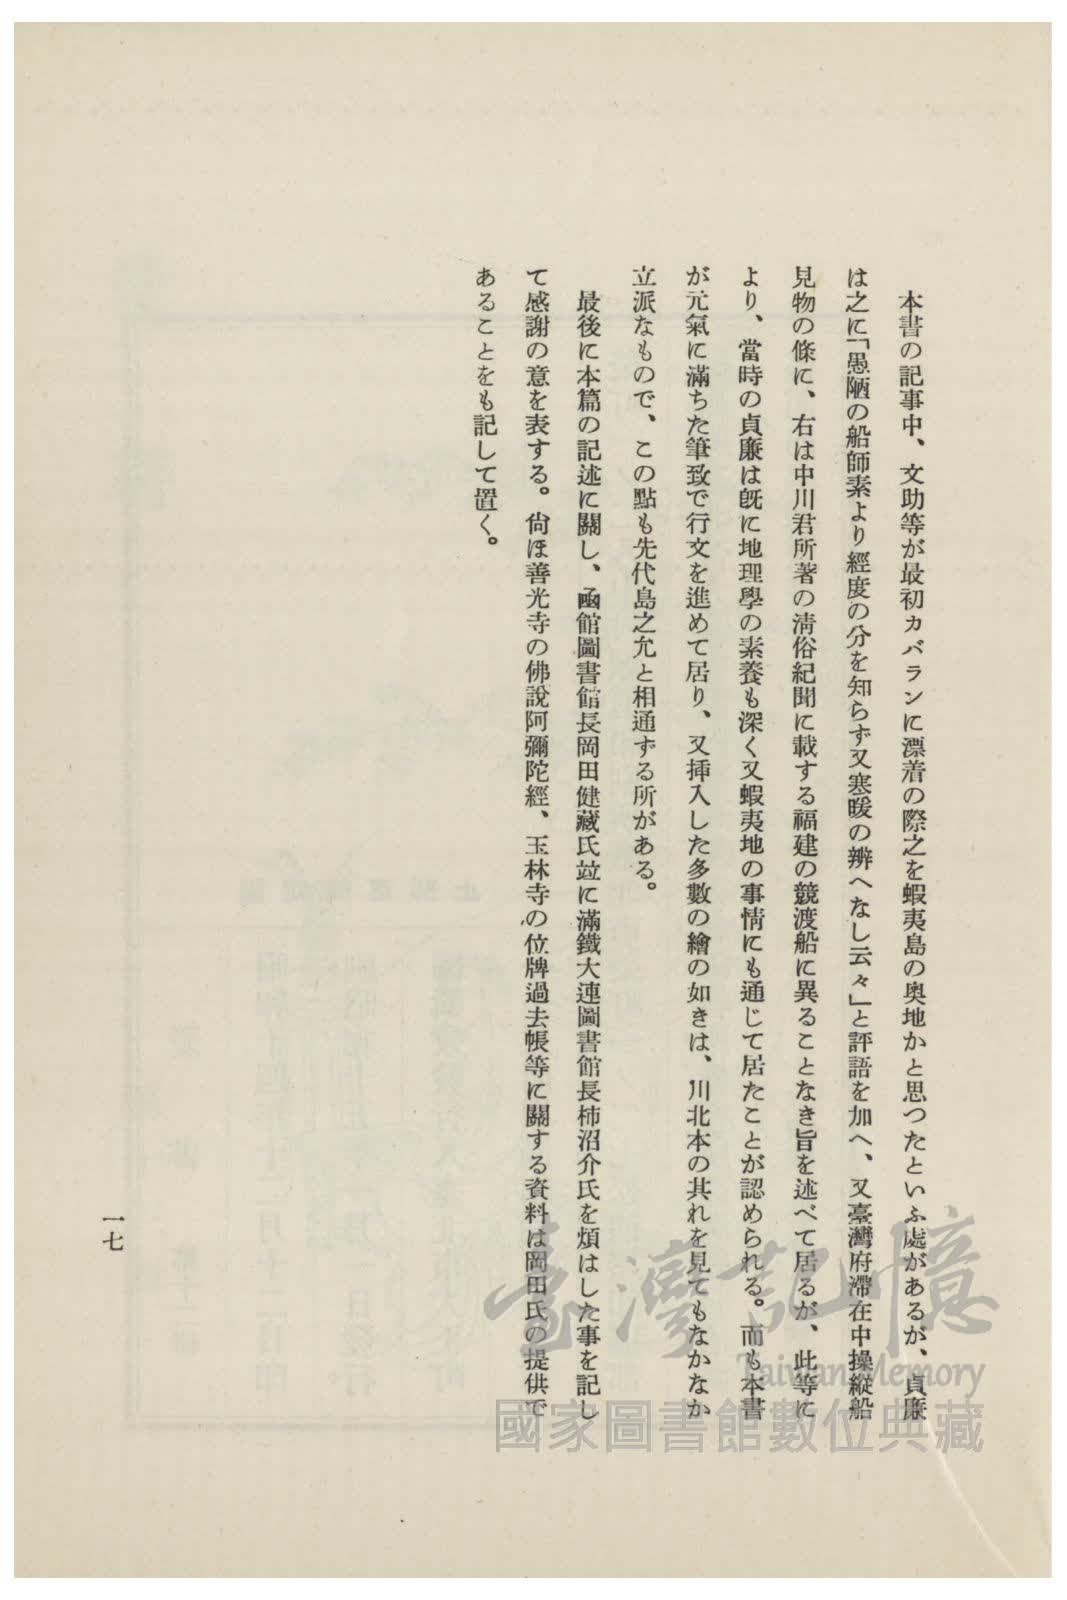 本書の記事中、文助等が最初カバランに漂着の際之を蝦夷島の奥地かと思つたといふ處があるが、貞廉
は之に「愚陋の船師素より經度の分を知らず又寒暖の辨へなし云々」と評語を加へ、又臺灣府滯在中操縱船
見物の條に、右は中川君所著の淸俗紀聞に載する福建の競渡船に異ることなき旨を述べて居るが、此等に
より、當時の貞廉は旣に地理學の素養も深く又蝦夷地の事情にも通じて居たことが認められる。而も本書
が元氣に滿ちた筆致で行文を進めて居り、又挿入した多數の繪の如きは、川北本の其れを見てもなかなか
立派なもので、この點も先代島之允と相通ずる所がある。
最後に本篇の記述に關し、函館圖書館長岡田健藏氏竝に滿鐵大連圖書館長柿沼介氏を煩はした事を記し
て感謝の意を表する。尙ほ善光寺の佛說阿彌陀經、玉林寺の位牌過去帳等に關する資料は岡田氏の提供で
あることをも記して置く。
一七
臺灣記憶
Taiwan Memory
國家圖書館數位典藏